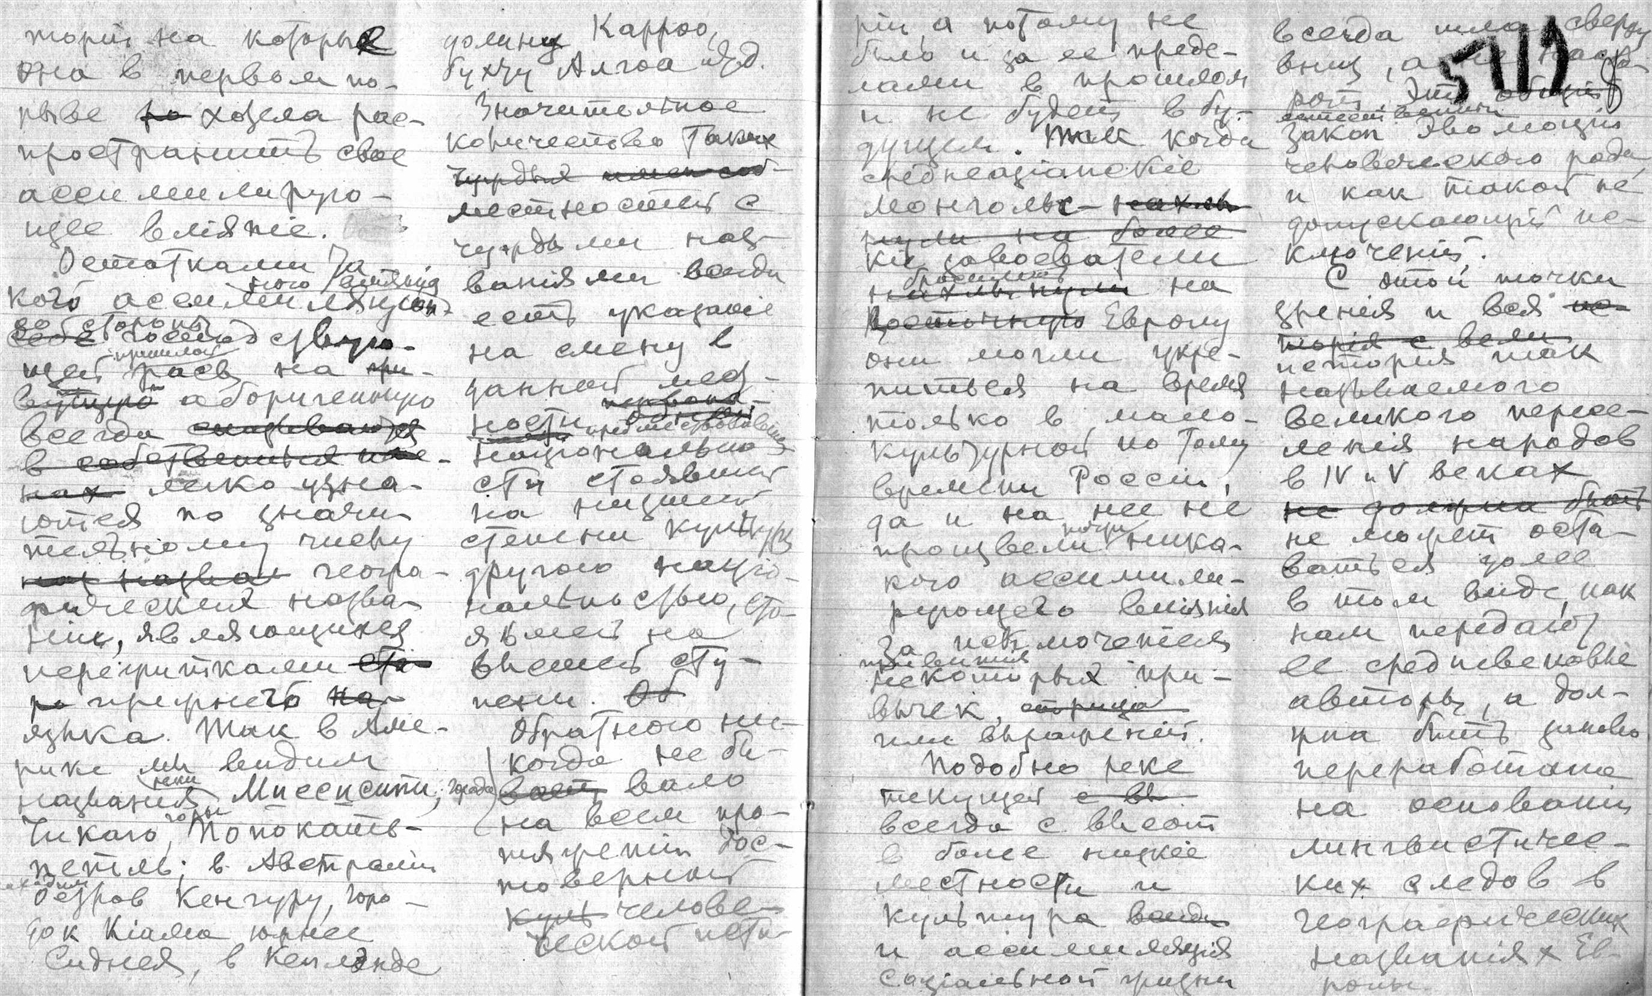 торіи на которые
она в первом по-
рыве хотела рас-
пространить свое
ассимилирую-
щее вліяніе.
Остатками та
кого ассимиляціон-
ного вліянія
со стороны
господствую-
щей пришлой
расы на
аборигенную
всегда
легко узна-
ются по значи
тельному числу
геогра-
фических назва-
ній, являющихся
пережитками
прежнего
языка. Так в Аме-
рике мы видим
названия реки Миссисипи, города
Чикаго, горы Попокать-
петль; в Австраліи
находим
остров Кенгуру, горо-
док Кіама южнее
Сиднея, в Кепландe
долину Карроо,
бухту Алгоа и т.д.
Значительное
количество таких
местностей с
чуждыми наз-
ваніями всегда
есть указаніе
на смену в
данной мест-
ности одной
предшествовавшей
национально
сти стоявшей
на низшей
степени культуры
другою націо-
нальностью, сто-
явшей на
высшей сту-
пени.
Обратного ни-
когда не бы-
вало
на всем про-
тяжении дос-
товерной
человe-
ческой исто-
ріи, а потому не
было и за ее преде-
лами в прошлом
и не будет в бу-
дущем. Так когда
среднеазіанскіе
монгольс-
кіе завоеватели
бросились на
Европу
они могли укре-
питься на время
только в мало-
культурной по тому
времени Россіи,
да и на нее не
произвели почти ника-
кого ассимили-
рующего вліянія
за исключеніем
привитія
некоторых при-
вычек,
или выраженій.
Подобно реке
текущей
всегда с высот
в более низкіе
местности и
культура
и ассимиляція
соціальной жизни
всегда шла сверху
вниз, а не наоб-
рот. Это общій
естественный
закон эволюціи
человеческого рода,
и как такой не
допускающій ис-
ключеній.
С этой точки
зренія и вся
исторія так
называемого
великого пересе-
ленія народов
в IV и V веках
не может оста-
ваться долее
в том виде, как
нам передают
ее средневековые
авторы, а дол-
жна быть заново
переработана
на основаніи
лингвистичес-
ких следов в
географических
названіях Ев-
ропы.